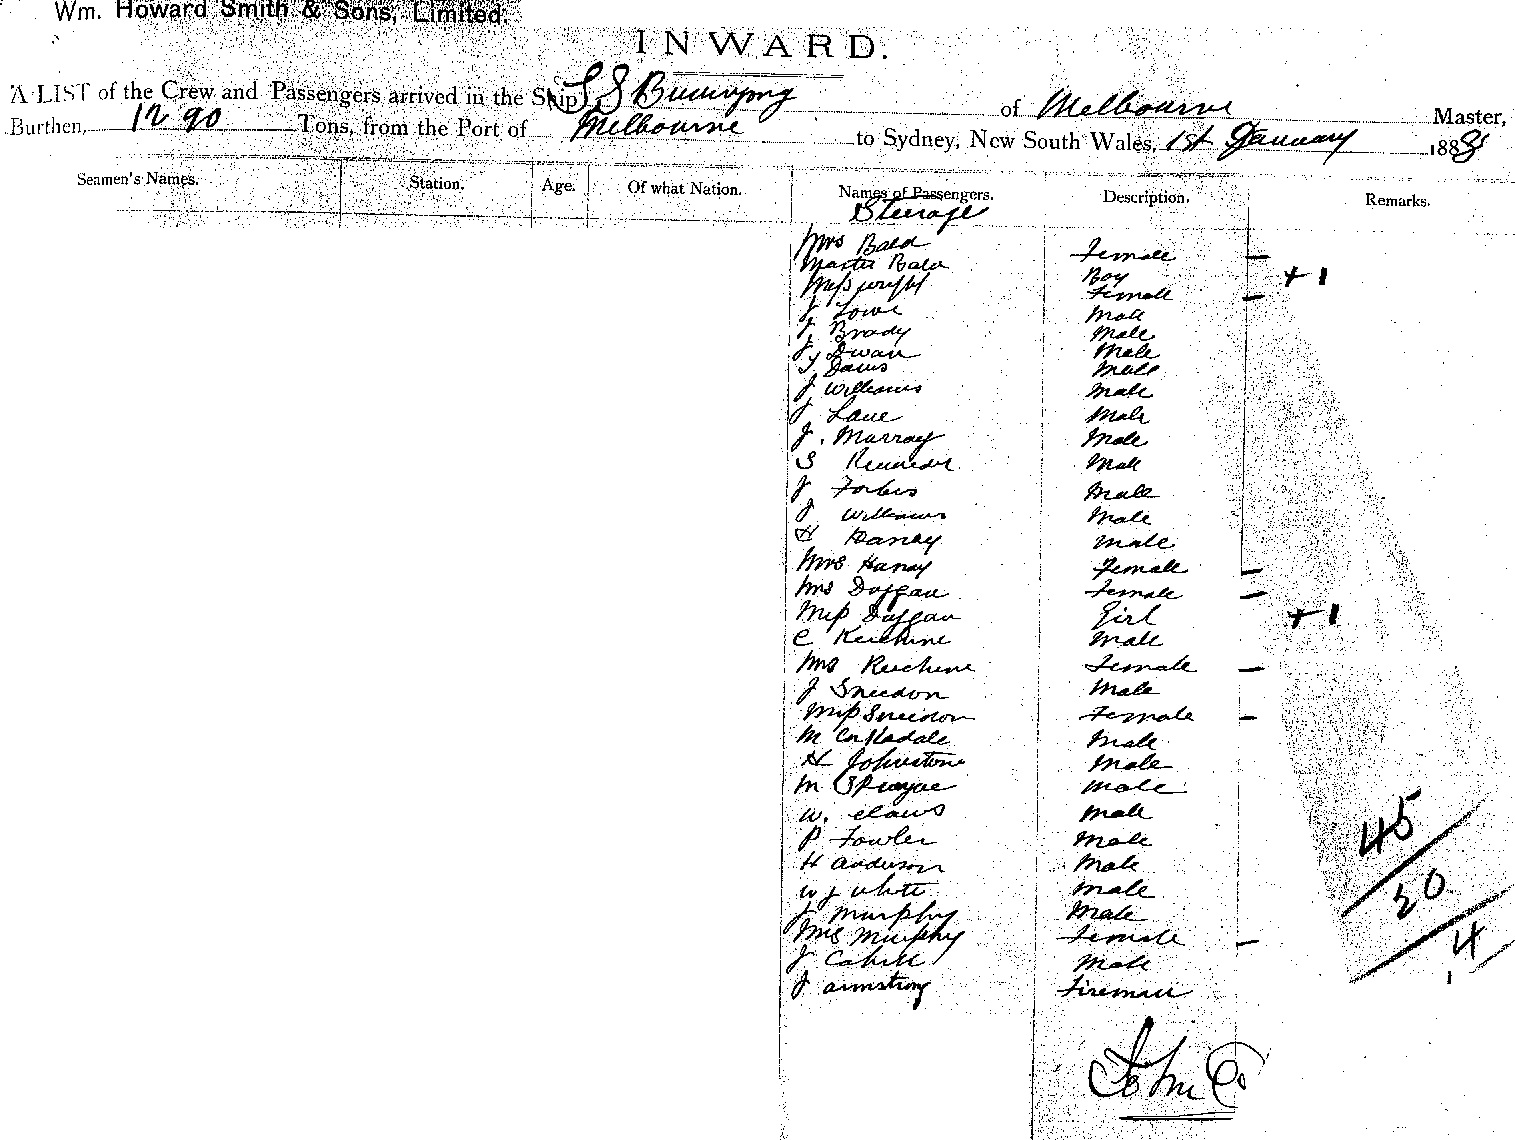 Wm. Howard Smith & Sons, Limited.
INWARD.
A LIST of the Crew and Passengers arrived in the Ship SS of Melbourne Master,
Burthen, 1290 Tons, from the Port of Melbourne to Sydney, New South Wales, 1st January 1888
Seamen's Names. Station. Age. Of what Nation. Names of Passengers. Description. Remarks.
Steerage
Mrs Bald Female –
Master Bald Boy +1
Miss Wright Female –
J Lowe Male
J Brady Male
J Dwan Male
J Davis Male
J Williams Male
J Lane Male
J. Murray Male
S Male
J Forbes Male
J Williams Male
H Haney Male
Mrs Haney Female –
Mrs Duggan Female –
Miss Duggan Girl +1
C Male
Mrs Female –
J Sneedon Male
Miss Sneedon Female –
M Male
H Johnstone Male
M Male
W. Male
P Fowler Male
H Anderson Male
W J White Male
J Murphy Male
Mrs Murphy Female –
J Cahill Male
J Armstrong Fireman
45
/
20
/
4
/
1
John